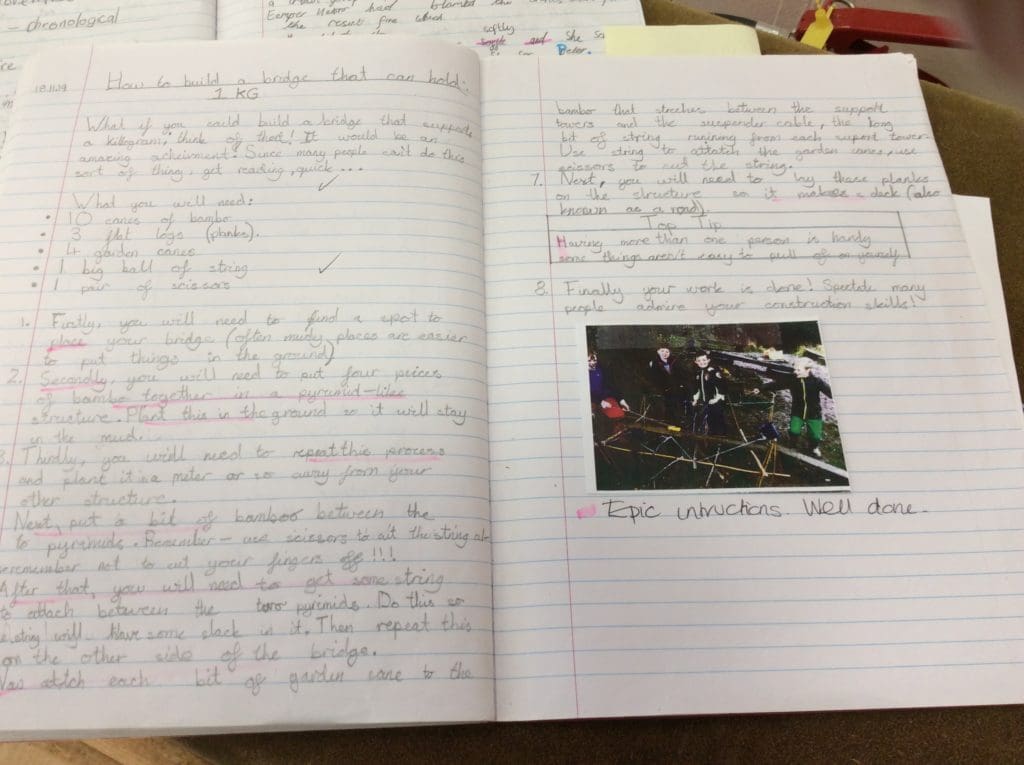 - chronological
softly
and She
Beter.
18.11.19
How to build a bridge that can hold:
1 KG
What if you could build a bridge that supports
a killogram, think of that! It would be an
amazing acheivment! Since many people can't do this
sort of thing, get reading, quick...
What you will need:
• 10 canes of bambo
• 3 flat logs (planks).
• 4 garden canes
• 1 big ball of string
• 1 pair of scissors
1. Firstly, you will need to find a spot to
place your bridge (often mudy places are easier
to put things in the ground)
2. Secondly, you will need to put four peices
of bambo together in a pyramid-like
structure. Plant this in the ground so it will stay
in the mud.
3. Thirdly, you will need to repeat this process
and plant it in a meter or so away from your
other structure.
Next, put a bit of bamboo between the
to pyramids. Remember - use scissors to cut the string
remember not to cut your fingers off!!!
After that, you will need to get some string
to attach between the two pyramids. Do this so
string will have some slack in it. Then repeat this
on the other side of the bridge.
attch each bit of garden cane to the
bambo that streches between the support
towers and the suspender cable, the long
bit of string runining from each suport tower.
Use string to attatch the garden canes, use
scissors to cut the string.
7. Next, you will need to lay those planks
on the structure so it makes a deck (also
known as a road).
Top Tip
Having more than one person is handy
some things aren't easy to pull of on yourself
8. Finally your work is done! Spectate many
people admire your construction skills!
Epic intructions. Well done.